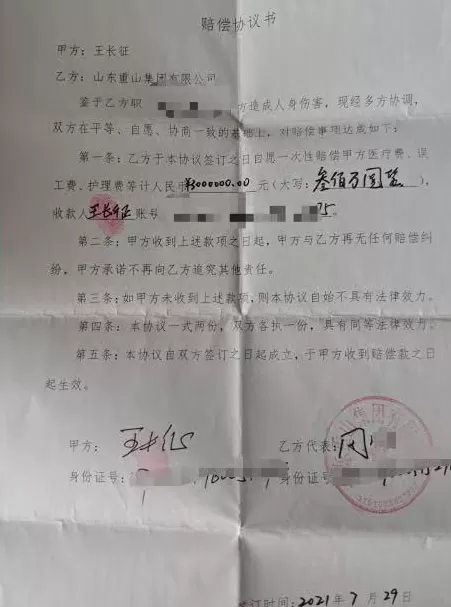 赔偿协议书
甲方：王长征
乙方：山东重山集团有限公司
鉴于乙方职 方造成人身伤害，现经多方协调，
双方在平等、自愿、协商一致的基础上，对赔偿事项达成如下：
第一条：乙方于本协议签订之日自愿一次性赔偿甲方医疗费、误
工费、护理费等计人民币¥3000000.00元（大写：叁佰万圆整），
收款人王长征账号 75。
第二条：甲方收到上述款项之日起，甲方与乙方再无任何赔偿纠
纷，甲方承诺不再向乙方追究其他责任。
第三条：如甲方未收到上述款项，则本协议自始不具有法律效力。
第四条：本协议一式两份，双方各执一份，具有同等法律效力。
第五条：本协议自双方签订之日起成立，于甲方收到赔偿款之日
起生效。
甲方：王长征 乙方代表：周
身份证号： 身份证号：
订时间：2021年7月29日